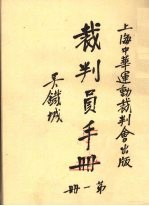 上海中華運動裁判會出版
裁判員手冊
第一冊
吳鐵城